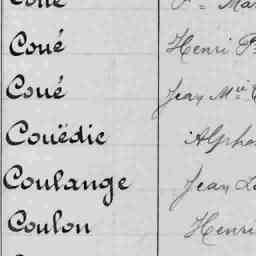 Coué Henri
Coué Jean Mie
Couëdic Alphon
Coulange Jean
Coulon Henri